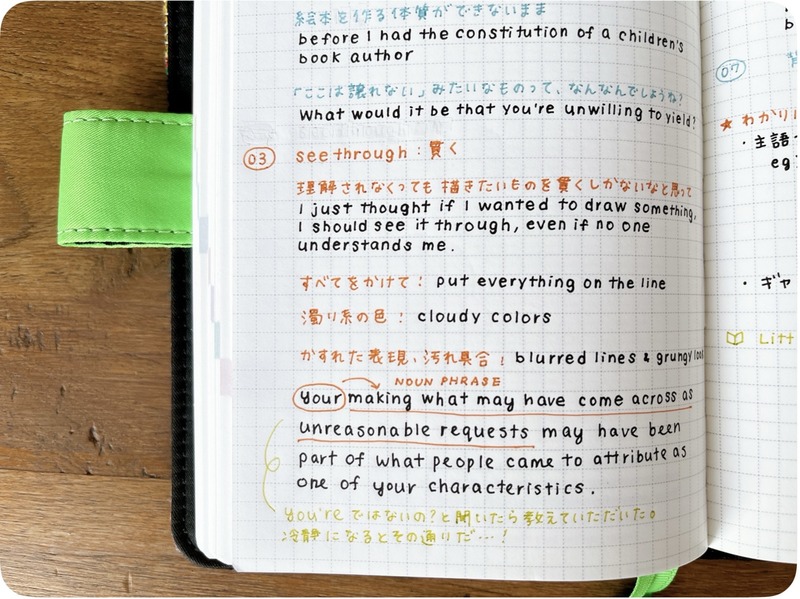 絵本を作る体質ができないまま
before I had the constitution of a children's
book author
「ここは譲れない」みたいなものって、なんなんでしょうね?
What would it be that you're unwilling to yield?
03 see through : 貫く
理解されなくっても 描きたいものを貫くしかないなと思って
I just thought if I wanted to draw something,
I should see it through, even if no one
understands me.
すべてをかけて : put everything on the line
濁り系の色 : cloudy colors
かすれた表現、汚れ具合 : blurred lines & grungy
NOUN PHRASE
Your making what may have come across as
unreasonable requests may have been
part of what people came to attribute as
one of your characteristics.
you're ではないの?と聞いたら教えていただいた。
冷静になるとその通りだ…!
07
★ わかり
・主語
eg
・ギャ
Litt